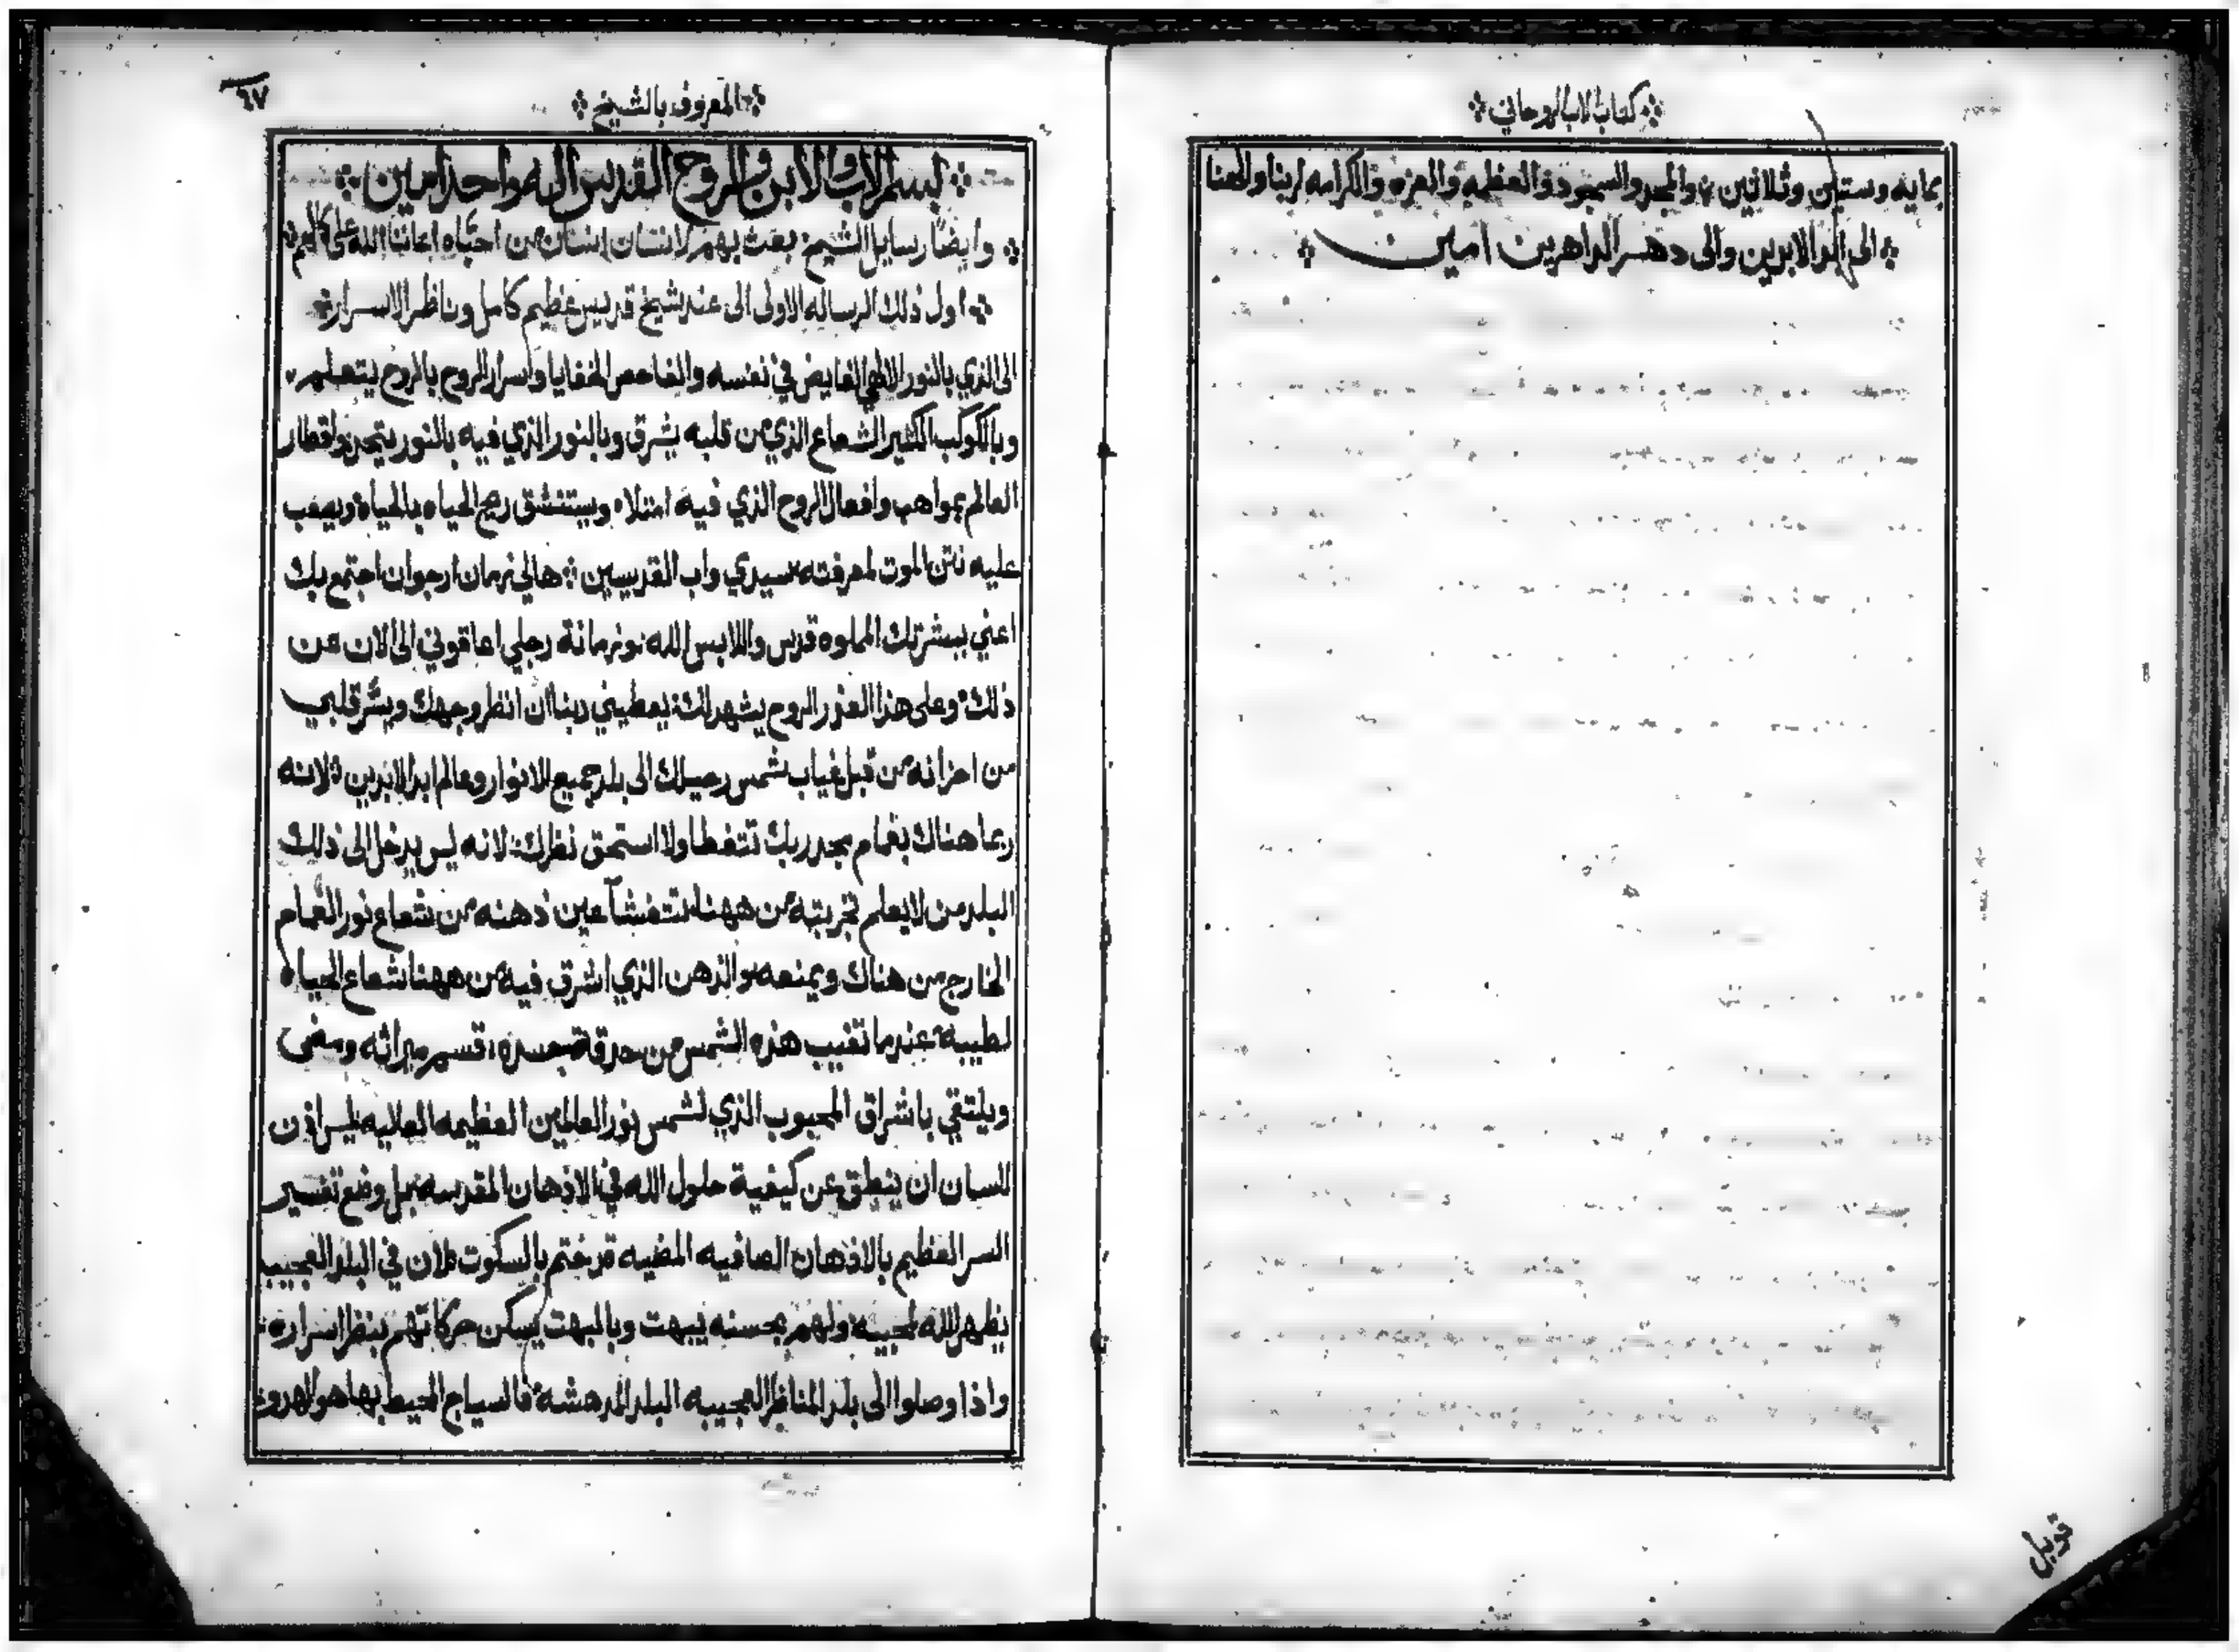 كتاب الاب الروحاني
بمايه وستين وثلاثين والمجد والسجود والعظمه والعزه والكرامه لربنا والهنا
الى ابد الابدين والى دهر الداهرين امين
قوبل
المعروف بالشيخ
٦٧
بسم الاب والابن والروح القدس اله واحد امين
وايضًا رسايل الشيخ بعث بهم لانسان انسان من احبّاه اعاننا الله على
اول ذلك الرساله الاولى الى عند شيخ قديس عظيم كامل وناظر الاسرار
الى الذي بالنور الالهي الفايض في نفسه والفاحص الخفايا واسرار الروح بالروح يتعلم
وبالكوكب الكثير الشعاع الذي من قلبه يشرق وبالنور الذي فيه بالنور يتحد واقطار
العالم بمواهب وافعال الروح الذي فيه امتلاه ويستنشق ريح الحياه بالحياه ويصعب
عليه نتن الموت لمعرفته سيدي واب القديسين هالي زمان ارجوان اجتمع بك
اعني ببشرتك المملوه قدس واللابس الله نو زمانة رجلي اعاقوني الى الان عن
ذلك وعلى هذا العذر الروح يشهد لك يعطيني ربنا ان انظر وجهك ويسّر قلبي
من احزانه من قبل غياب شمس رحيلك الى بلد جميع الانوار وعالم ابد الابدين لانه
ربما هناك بغمام مجد ربك تتغطا ولا استحق نظرك لانه ليس يدخل الى ذلك
البلد من لا يعلم تجربته من ههنا تتغشا عين ذهنه من شعاع نور الغمام
الخارج من هناك ويمنعه والذهن الذي اشرق فيه من ههنا شعاع الحياه
لطيبة عندما تغيب هذه الشمس من حدقة جسده قسم ميراثه ومضى
ويلتقي باشراق المحبوب الذي لشمس نور العالمين العظيمه العلايه ليس اذن
للسان ان ينطق عن كيفية حلول الله في الاذهان المقدسه بل وضع تفسير
السر العظيم بالاذهان الصافيه المضيه قد ختم بالسكوت لان في البلد العجيب
يظهر الله لمحبيه ولهم بحسنه يبهت وبالبهت يسكن حركاتهم بنظر اسراره
واذا وصلوا الى بلد المناظر العجيبه البلد المدهشة فالسياج المحيط بها هو الهدو